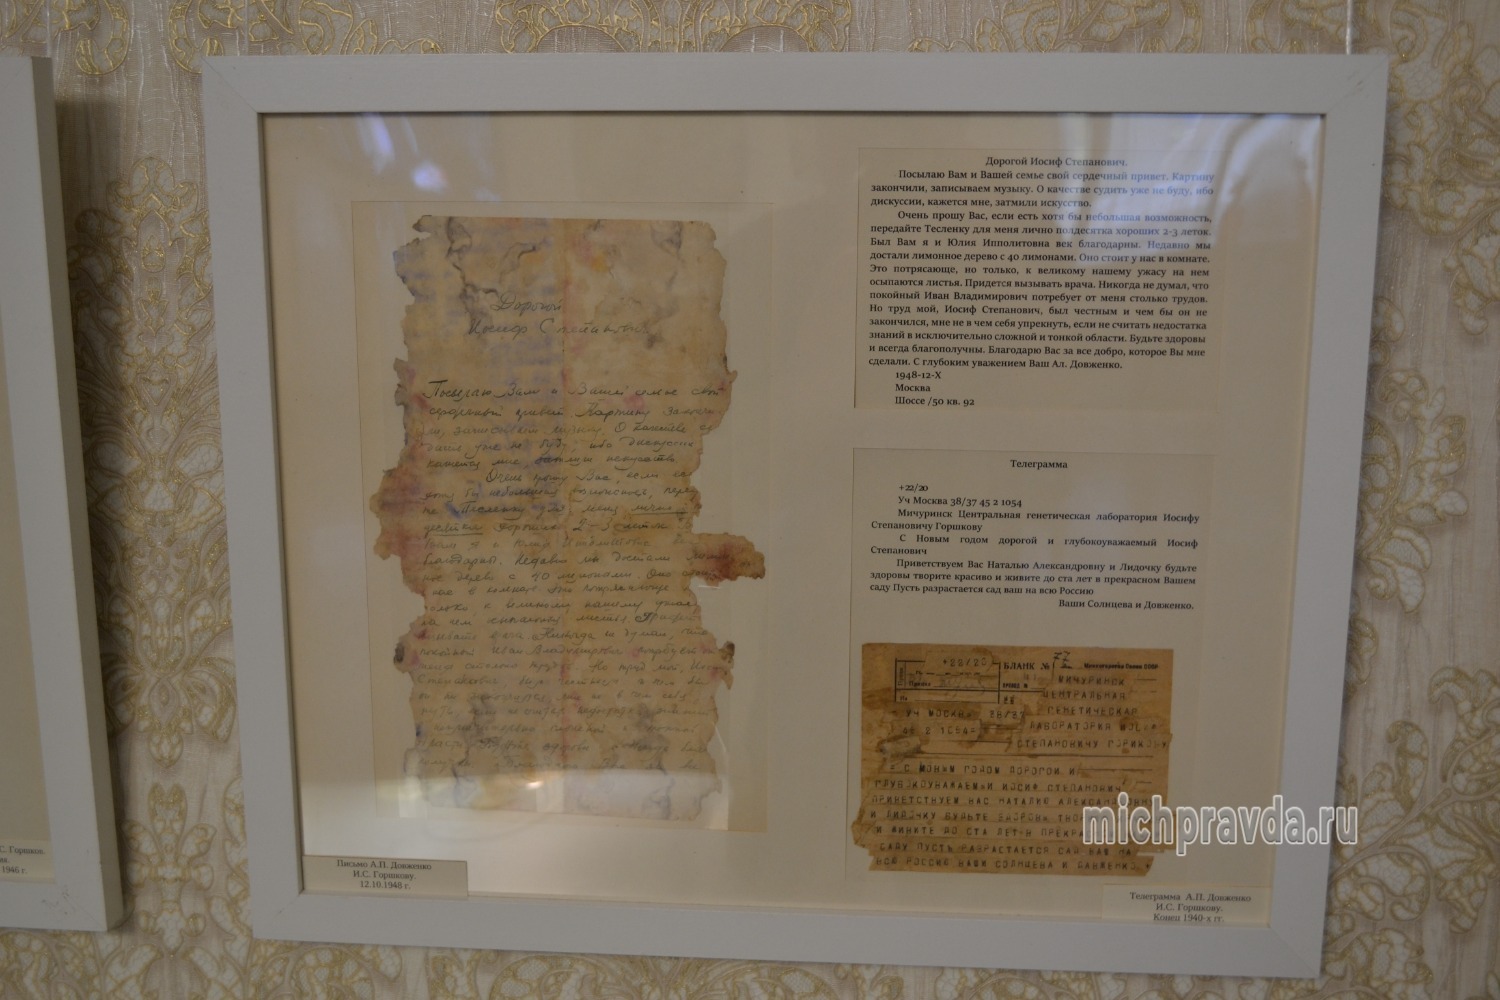 Дорогой
Иосиф Степанович.
Посылаю Вам и Вашей семье свой
сердечный привет. Картину закончи-
ли, записываем музыку. О качестве су-
дить уже не буду, ибо дискуссии
кажется мне, затмили искусство.
Очень прошу Вас, если ес
хотя бы небольшая возможность, пере
Тесленку для меня лично
десятка хороших 2-3 леток
Вам я и Юлия Ипполитовна
благодарны. Недавно мы достали лимон
ное дерево с 40 лимонами. Оно
нас в комнате. Это потрясающе
только, к великому нашему ужасу
на нем осыпаются листья. Придет
вызывать врача. Никогда не думал, что
покойный Иван Владимирович потребует
меня столько трудов. Но труд мой, Иоси
Степанович, был честным и чем бы
он не закончился, мне не в чем себя
Дорогой Иосиф Степанович.
Посылаю Вам и Вашей семье свой сердечный привет. Картину
закончили, записываем музыку. О качестве судить уже не буду, ибо
дискуссии, кажется мне, затмили искусство.
Очень прошу Вас, если есть хотя бы небольшая возможность,
передайте Тесленку для меня лично полдесятка хороших 2-3 леток.
Был Вам я и Юлия Ипполитовна век благодарны. Недавно мы
достали лимонное дерево с 40 лимонами. Оно стоит у нас в комнате.
Это потрясающе, но только, к великому нашему ужасу на нем
осыпаются листья. Придется вызывать врача. Никогда не думал, что
покойный Иван Владимирович потребует от меня столько трудов.
Но труд мой, Иосиф Степанович, был честным и чем бы он не
закончился, мне не в чем себя упрекнуть, если не считать недостатка
знаний в исключительно сложной и тонкой области. Будьте здоровы
и всегда благополучны. Благодарю Вас за все добро, которое Вы мне
сделали. С глубоким уважением Ваш Ал. Довженко.
1948-12-X
Москва
Шоссе /50 кв. 92
Телеграмма
+22/20
Уч Москва 38/37 45 2 1054
Мичуринск Центральная генетическая лаборатория Иосифу
Степановичу Горшкову
С Новым годом дорогой и глубокоуважаемый Иосиф
Степанович
Приветствуем Вас Наталью Александровну и Лидочку будьте
здоровы творите красиво и живите до ста лет в прекрасном Вашем
саду Пусть разрастается сад ваш на всю Россию
Ваши Солнцева и Довженко.
+22/20
БЛАНК №
МИЧУРИНСК
ЦЕНТРАЛЬНАЯ
ГЕНЕТИЧЕСКАЯ
УЧ МОСКВА 38/37
ЛАБОРАТОРИЯ ИОСИ
45 2 1054=
СТЕПАНОВИЧУ ГОРШКОВУ
= С НОВЫМ ГОДОМ ДОРОГОЙ И
ГЛУБОКОУВАЖАЕМЫЙ ИОСИФ СТЕПАНОВИЧ
ПРИВЕТСТВУЕМ ВАС НАТАЛЬЮ АЛЕКСАНДРОВН
И ЛИДОЧКУ БУДЬТЕ ЗДОРОВЫ ТВО
И ЖИВИТЕ ДО СТА ЛЕТ В ПРЕКРА
САДУ ПУСТЬ РАЗРАСТАЕТСЯ САД ВАШ НА
ВСЮ РОССИЮ ВАШИ СОЛНЦЕВА И ДОВЖЕНКО
michpravda.ru
С. Горшков.
1946 г.
Письмо А.П. Довженко
И.С. Горшкову.
12.10.1948 г.
Телеграмма А.П. Довженко
И.С. Горшкову.
Конец 1940-х гг.